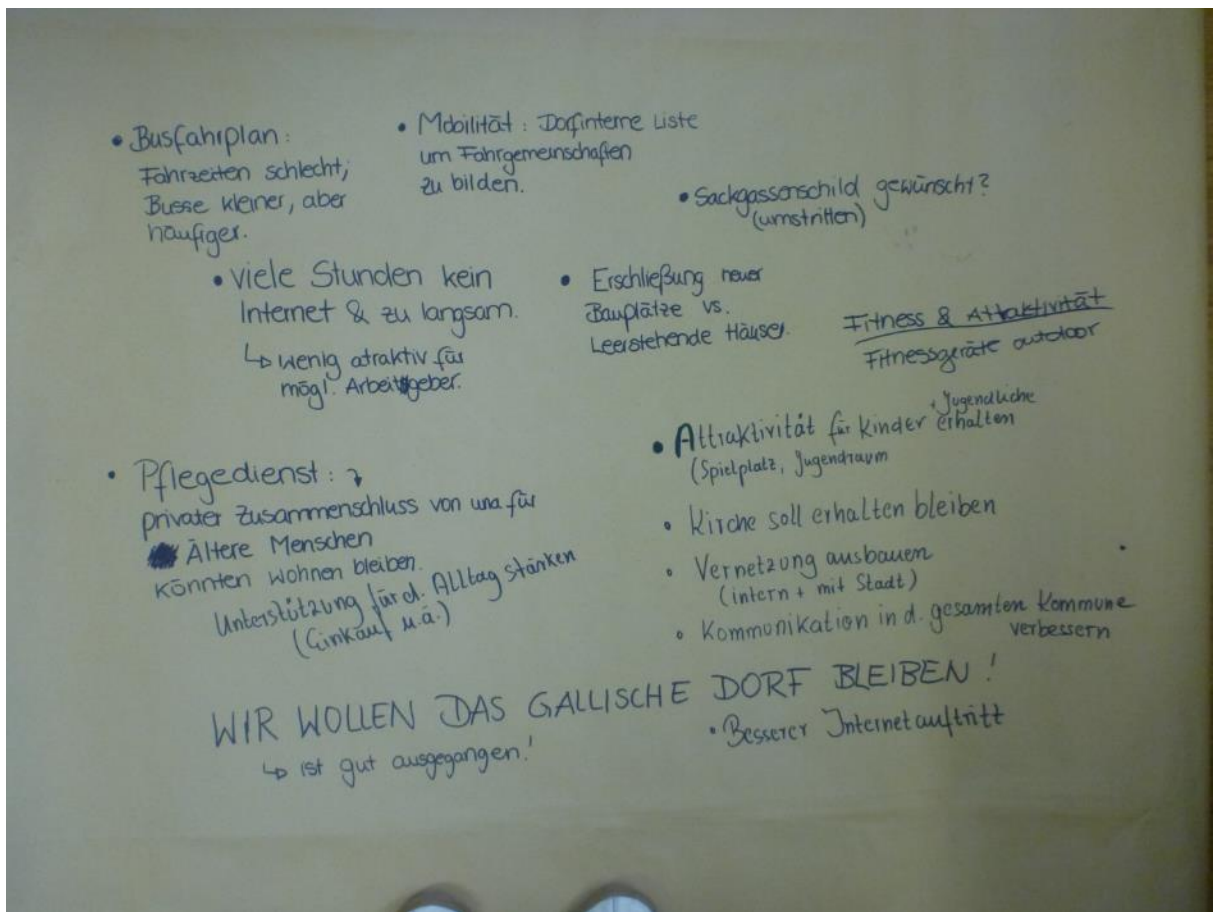 • Busfahrplan:
Fahrzeiten schlecht;
Busse kleiner, aber
häufiger.
• Mobilität: Dorfinterne Liste
um Fahrgemeinschaften
zu bilden.
• Sackgassenschild gewünscht?
(umstritten)
• viele Stunden kein
Internet & zu langsam.
↳ wenig atraktiv für
mögl. Arbeitgeber.
• Erschließung neuer
Bauplätze vs.
Leerstehende Häuser.
Fitness & Attraktivität
Fitnessgeräte outdoor
• Attraktivität für Kinder + Jugendliche erhalten
(Spielplatz, Jugendraum
• Pflegedienst:
privater Zusammenschluss von uns für
Ältere Menschen
könnten wohnen bleiben.
Unterstützung für d. Alltag stärken
(Einkauf u.ä.)
• Kirche soll erhalten bleiben
• Vernetzung ausbauen
(intern + mit Stadt)
• Kommunikation in d. gesamten Kommune
verbessern
WIR WOLLEN DAS GALLISCHE DORF BLEIBEN!
↳ ist gut ausgegangen!
• Besserer Internetauftritt